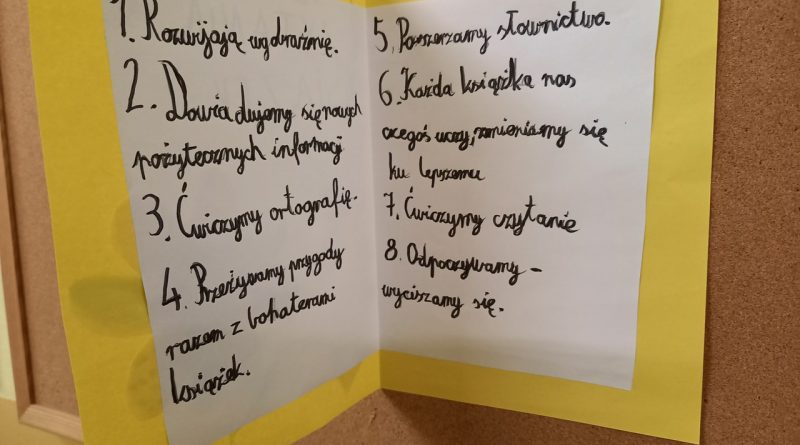 1. Rozwijają wyobraźnię.
2. Dowiadujemy się nowych
pożytecznych informacji
3. Ćwiczymy ortografię.
4. Przeżywamy przygody
razem z bohaterami
książek.
5. Poszerzamy słownictwo.
6. Każda książka nas
czegoś uczy, zmieniamy się
ku lepszemu
7. Ćwiczymy czytanie
8. Odpoczywamy -
wyciszamy się.